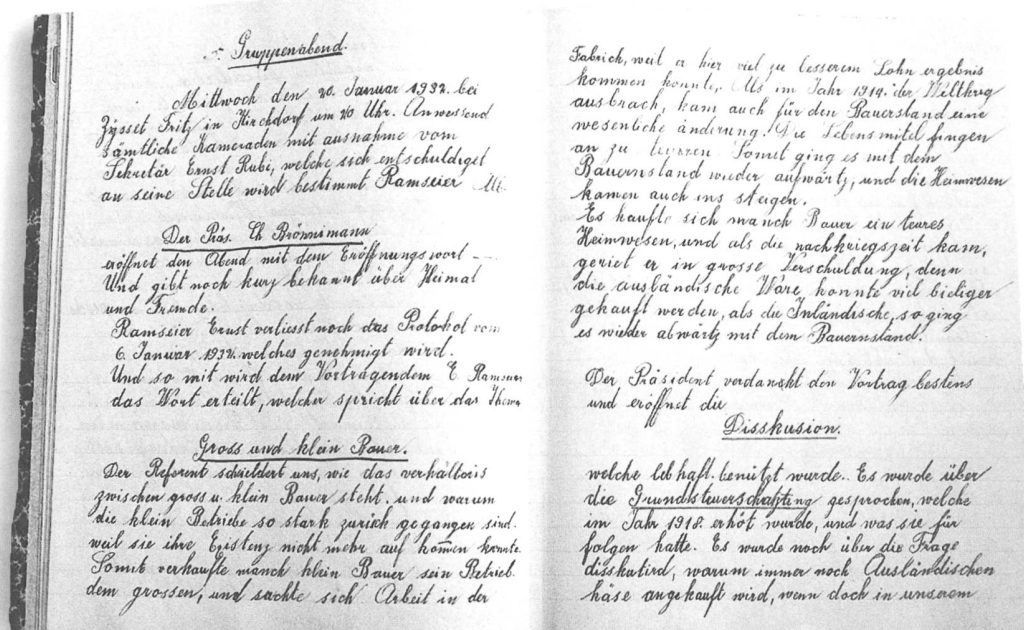 5. Gruppenabend.
Mittwoch den 20. Januar 1932. bei
Zysset Fritz in Kirchdorf um 20 Uhr. Anwessend
sämtliche Kameraden mit ausnahme vom
Sekretär Ernst Rubi, welche sich entschuldiget
an seine Stelle wird bestimmt Ramseier
Der Präs. Ch Brönnimann
eröffnet den Abend mit dem Eröffnungswort
Und gibt noch kurz bekannt über Heimat
und Fremde.
Ramseier Ernst verliesst noch das Protokol vom
6. Januar 1932. welches genehmigt wird.
Und so mit wird dem Vortragendem E. Ramseier
das Wort erteilt, welcher spricht über das Thema
Gross und klein Bauer.
Der Referent schieldert uns, wie das verhältniss
zwischen gross u. klein Bauer steht. und warum
die klein Betriebe so stark zurück gegangen sind.
weil sie ihre Existenz nicht mehr auf komen konnte
Somit verkaufte manch klein Bauer sein Betrieb.
dem grossen, und suchte sich Arbeit in der
Fabrich, weil er hier viel zu besserem Lohn ergebnis
kommen konnte. Als im Jahr 1914. der Weltkrieg
ausbrach, kam auch für den Bauerstand eine
wesenliche änderung. Die Lebensmitel fingen
an zu teueren. Somit ging es mit dem
Bauernstand wieder aufwärtz, und die Heimwesen
kamen auch ins steigen.
Es kaufte sich manch Bauer ein teures
Heimwesen, und als die nachkriegszeit kam,
geriet er in grosse Verschuldung, denn
die ausländische Ware konnte viel bieliger
gekauft werden, als die Inländische, so ging
es wieder abwärtz mit dem Bauernstand.
Der Präsident verdankt den Vortrag bestens
und eröffnet die
Disskusion.
welche lebhaft benützt wurde. Es wurde über
die Grundsteuerschatzung gesprochen, welche
im Jahr 1918. erhöt wurde, und was sie für
folgen hatte. Es wurde noch über die Frage
disskutird, warum immer noch Ausländischen
käse angekauft wird, wenn doch in unserem